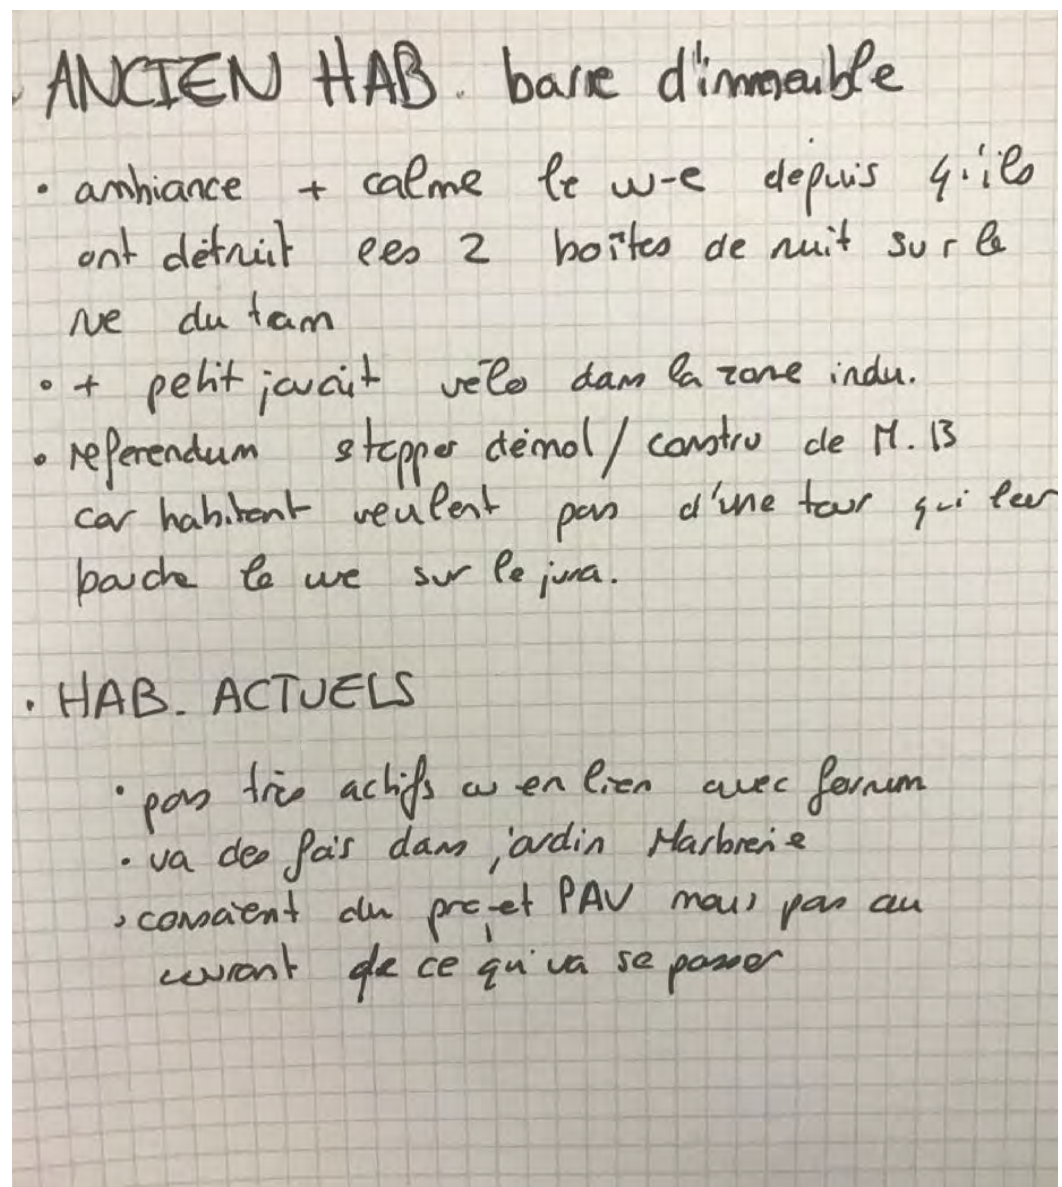 . ANCIEN HAB. barre d'immeuble
• ambiance + calme le w-e depuis q.ils
ont détruit les 2 boîtes de nuit sur la
rue du tam
• + petit jouait vélo dans la zone indu.
• referendum stopper démol/constru de M.B
car habitant veulent pas d'une tour qui leur
bouche la vue sur le jura.
• HAB. ACTUELS
• pas très actifs ou en lien avec forum
• va des fois dans jardin Marbrerie
• conscient du projet PAV mais pas au
courant de ce qu'va se passer